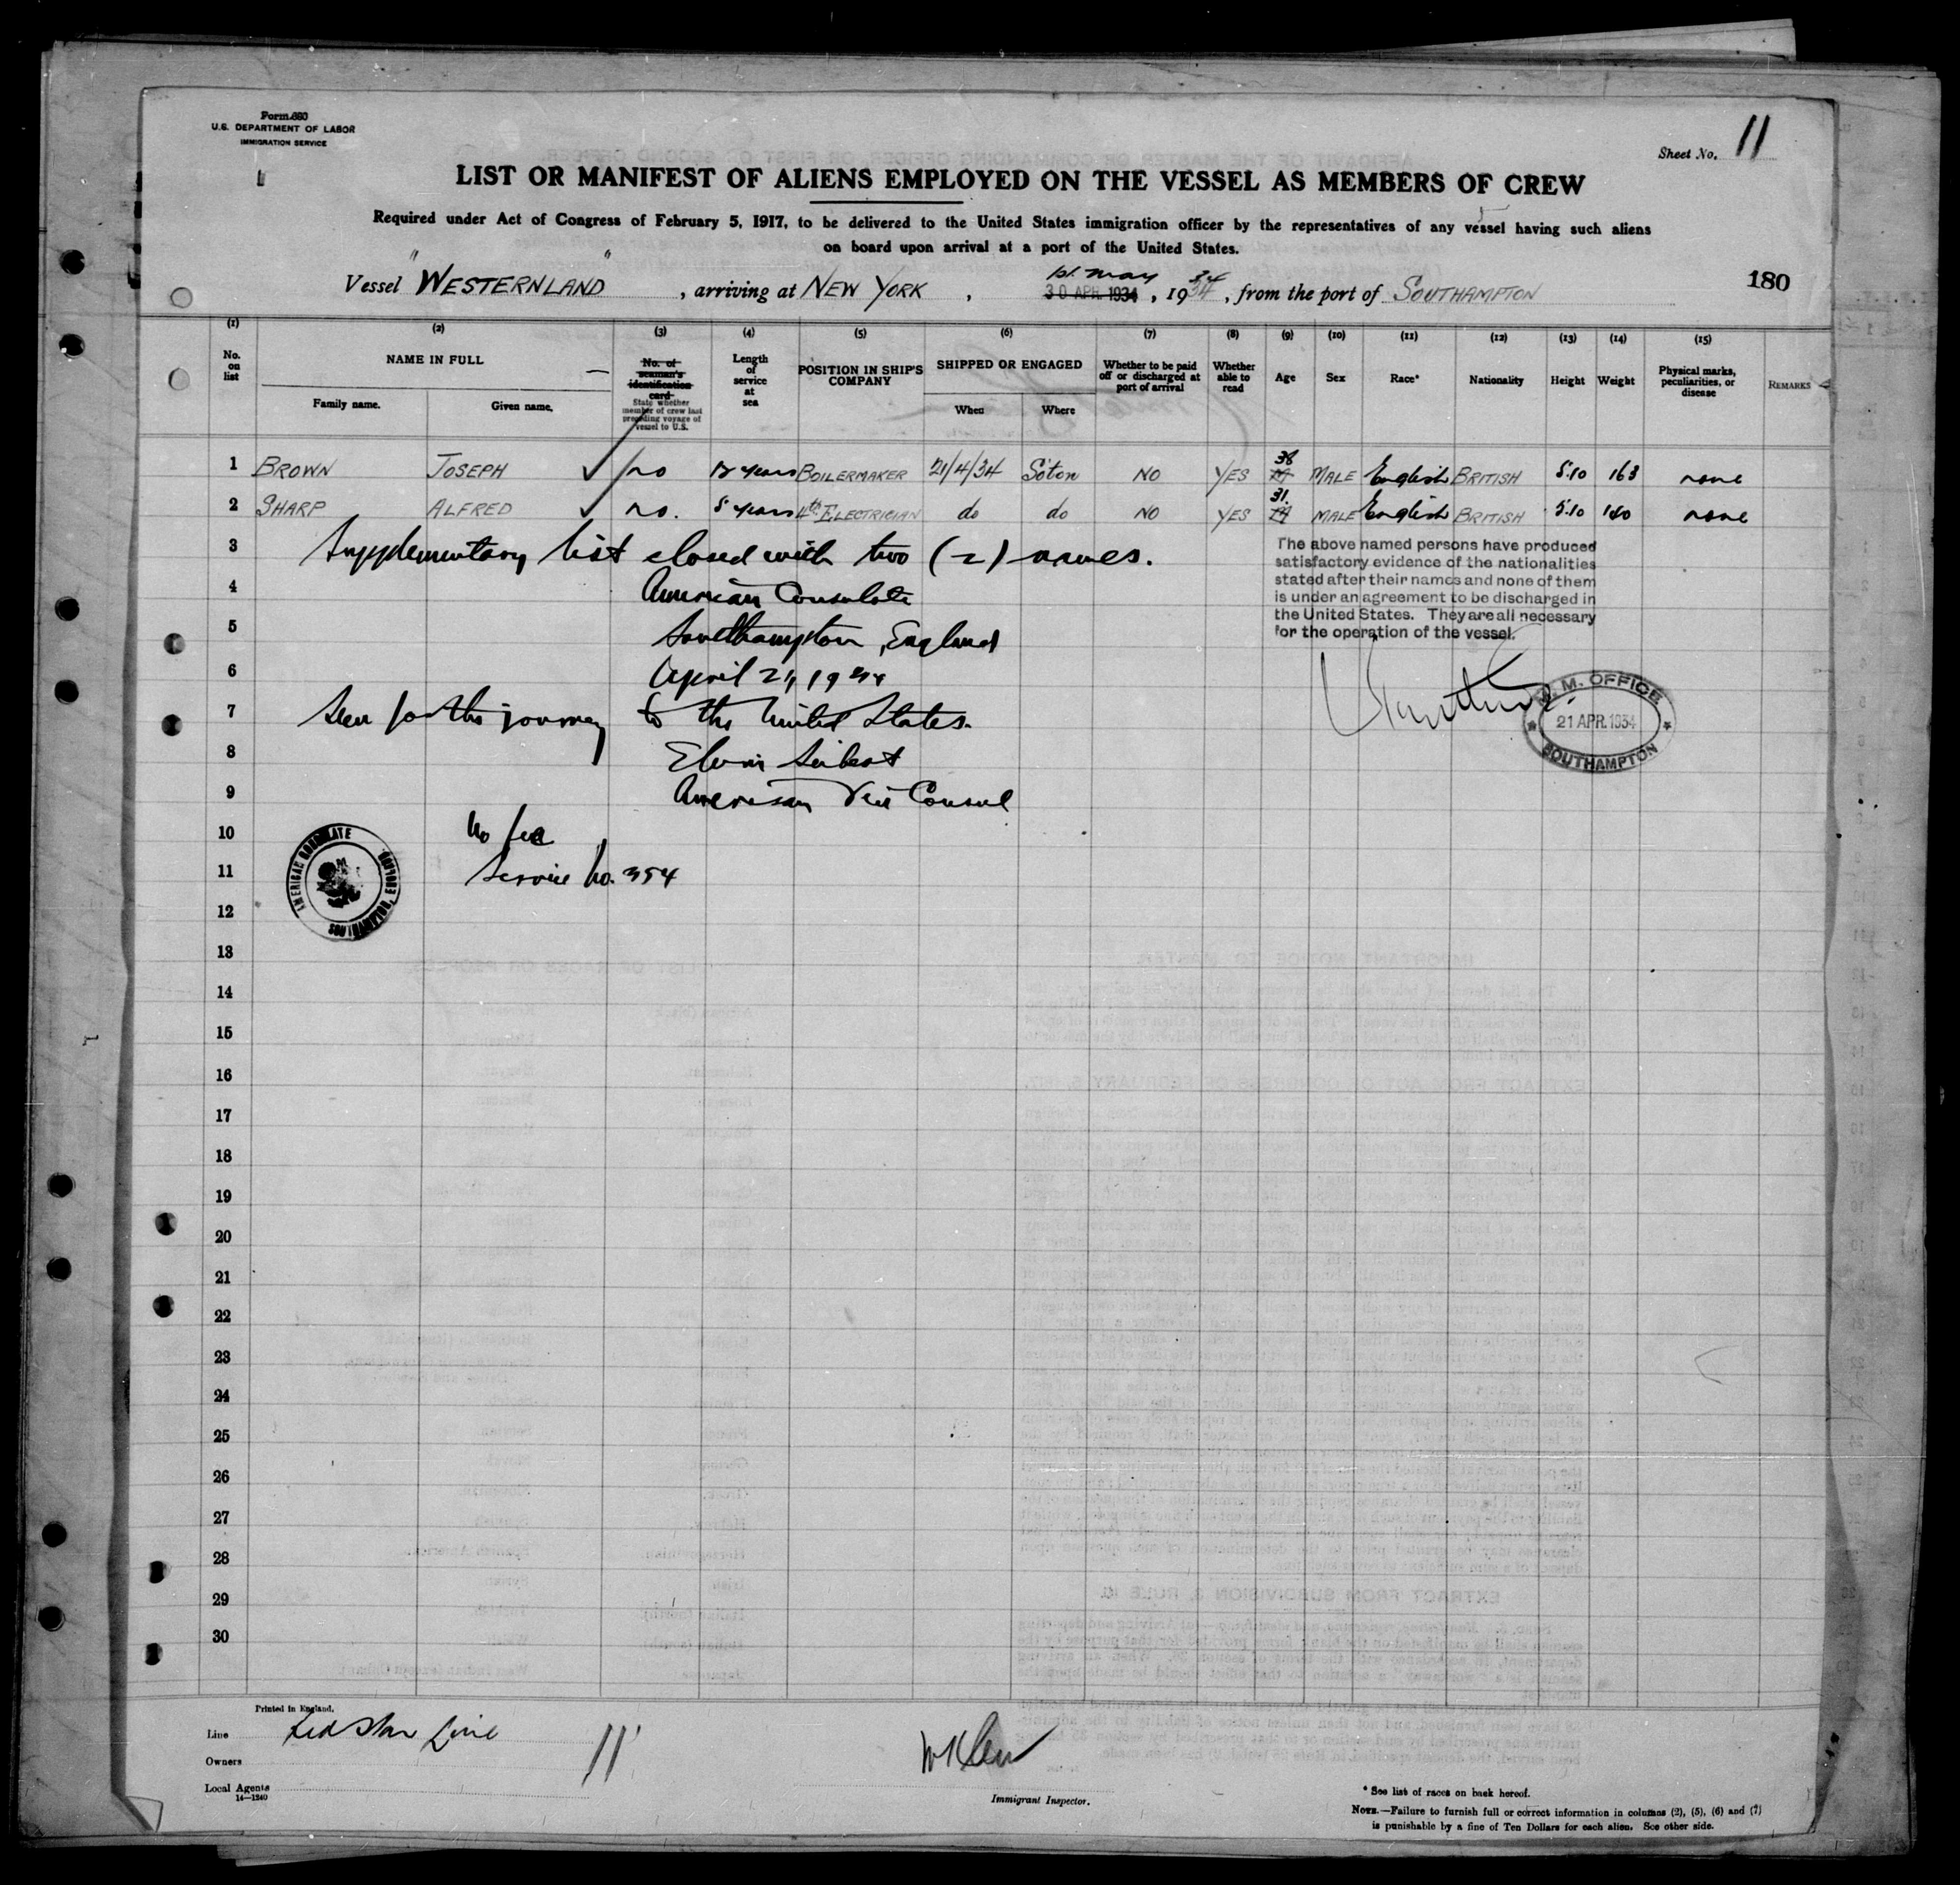 Form 680
U.S. DEPARTMENT OF LABOR
IMMIGRATION SERVICE
Sheet No. 11
LIST OR MANIFEST OF ALIENS EMPLOYED ON THE VESSEL AS MEMBERS OF CREW
Required under Act of Congress of February 5, 1917, to be delivered to the United States immigration officer by the representatives of any vessel having such aliens
on board upon arrival at a port of the United States.
Vessel "WESTERNLAND", arriving at NEW YORK, 1st. May 30 APR. 1934, 1934, from the port of SOUTHAMPTON
180
(1) (2) (3) (4) (5) (6) (7) (8) (9) (10) (11) (12) (13) (14) (15)
No. on list
NAME IN FULL
Family name. Given name.
No. of seaman's identification card
State whether member of crew last preceding voyage of vessel to U.S.
Length of service at sea
POSITION IN SHIP'S COMPANY
SHIPPED OR ENGAGED
When Where
Whether to be paid off or discharged at port of arrival
Whether able to read
Age
Sex
Race*
Nationality
Height
Weight
Physical marks, peculiarities, or disease
REMARKS
1 BROWN JOSEPH no years BOILERMAKER 21/4/34 Soton NO YES 38 MALE English BRITISH 5.10 163 none
2 SHARP ALFRED no. 5 years 4th ELECTRICIAN do do NO YES 31. MALE English BRITISH 5.10 140 none
3 Supplementary list closed with two (2) names.
4 American Consulate
5 Southampton, England
6 April 21, 1934
7 Seen for the journey to the United States.
8 Elvin Seibert
9 American Vice Consul
10 No fee
11 Service No. 354
12
13
14
15
16
17
18
19
20
21
22
23
24
25
26
27
28
29
30
The above named persons have produced
satisfactory evidence of the nationalities
stated after their names and none of them
is under an agreement to be discharged in
the United States. They are all necessary
for the operation of the vessel.
M.M. OFFICE
21 APR. 1934
SOUTHAMPTON
AMERICAN CONSULATE
SOUTHAMPTON, ENGLAND
Printed in England.
Line Red Star Line
11
Owners
Local Agents
14—1240
Immigrant Inspector.
* See list of races on back hereof.
NOTE.—Failure to furnish full or correct information in columns (2), (5), (6) and (7)
is punishable by a fine of Ten Dollars for each alien. See other side.